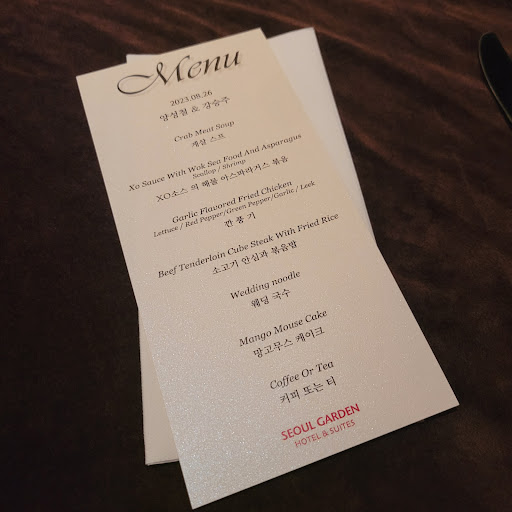 Menu
2023.08.26
양성철 & 강승주
Crab Meat Soup
게살 스프
Xo Sauce With Wok Sea Food And Asparagus
Scallop / Shrimp
XO소스 의 해물 아스파라거스 볶음
Garlic Flavored Fried Chicken
Lettuce / Red Pepper/Green Pepper/Garlic / Leek
깐 풍 기
Beef Tenderloin Cube Steak With Fried Rice
소고기 안심과 볶음밥
Wedding noodle
웨딩 국수
Mango Mouse Cake
망고무스 케이크
Coffee Or Tea
커피 또는 티
SEOUL GARDEN
HOTEL & SUITES